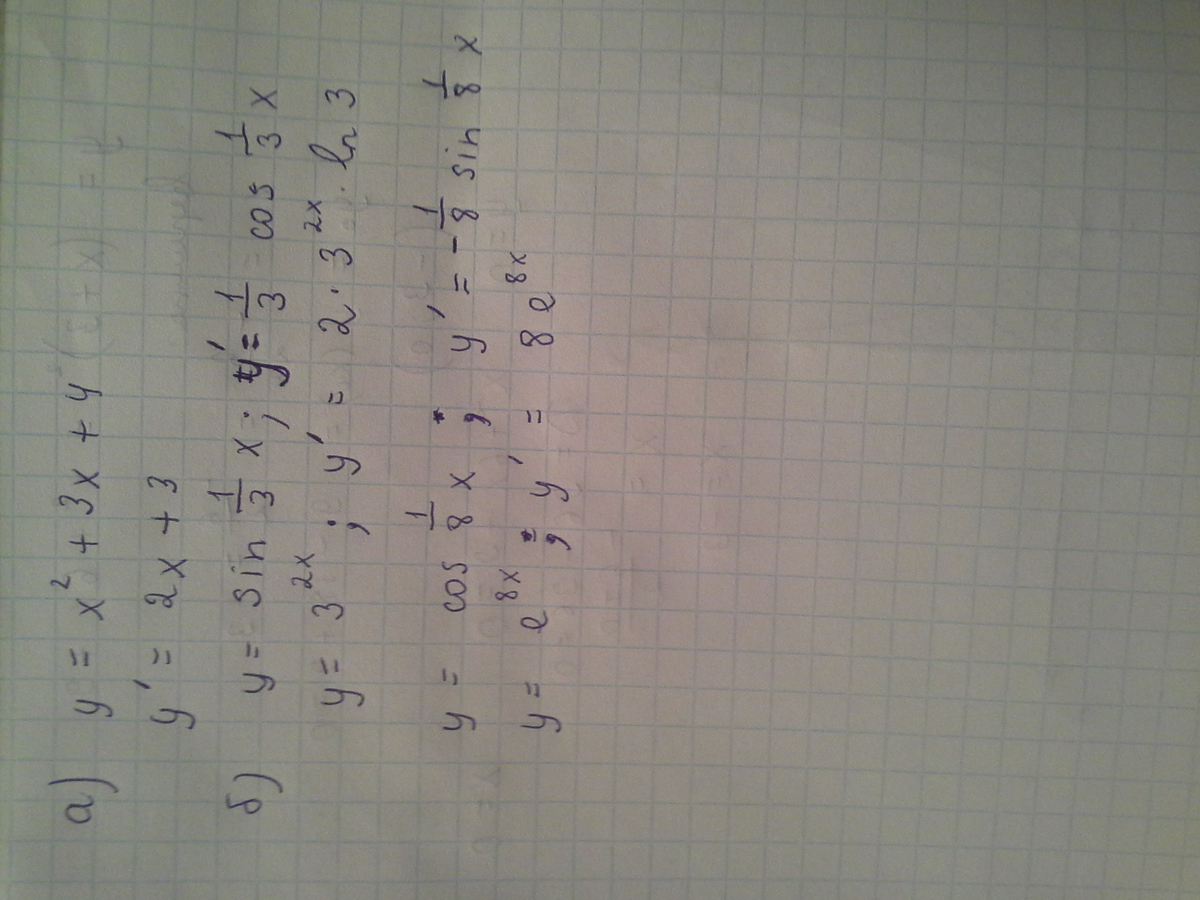 а) y = x² + 3x + 4
y' = 2x + 3
б) y = sin 1/3 x; y' = 1/3 cos 1/3 x
y = 3^2x; y' = 2 · 3^2x · ln 3
y = cos 1/8 x; y' = -1/8 sin 1/8 x
y = e^8x; y' = 8 e^8x